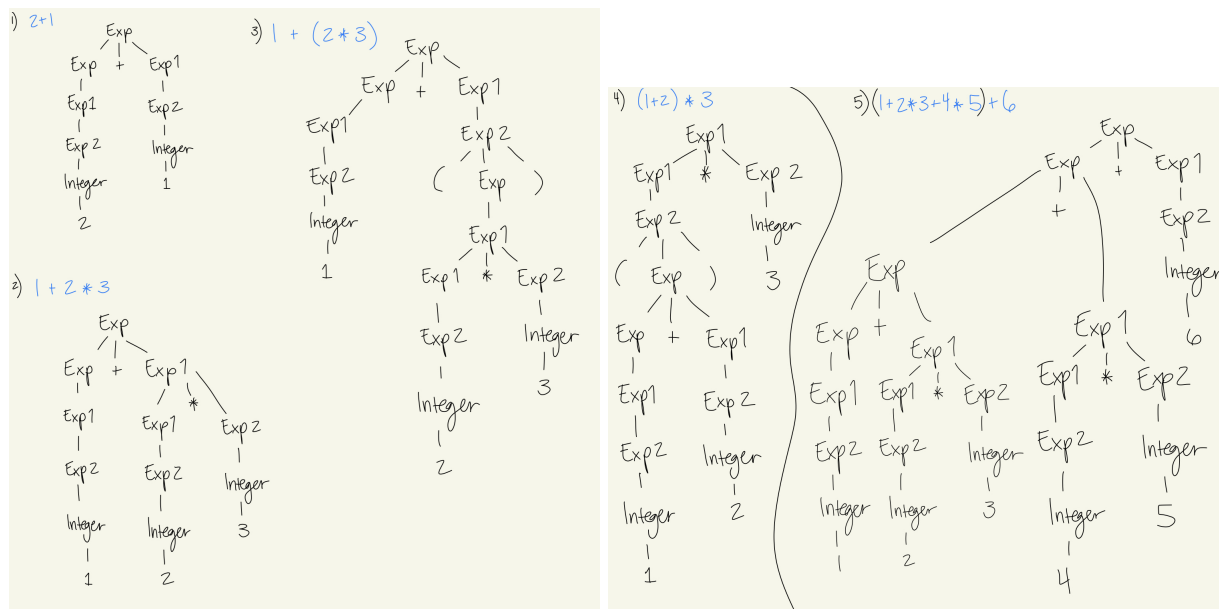 1) 2+1
Exp
Exp + Exp1
Exp1 Exp2
Exp2 Integer
Integer 1
2
2) 1 + 2 * 3
Exp
Exp + Exp1
*
Exp1 Exp1 Exp2
Exp2 Exp2 Integer
Integer Integer 3
1 2
3) 1 + (2 * 3)
Exp
Exp + Exp1
Exp1 Exp2
Exp2 ( Exp )
Integer Exp1
1 Exp1 * Exp2
Exp2 Integer
Integer 3
2
4) (1+2) * 3
Exp1
Exp1 * Exp2
Exp2 Integer
( Exp ) 3
Exp + Exp1
Exp1 Exp2
Exp2 Integer
Integer 2
1
5) (1+2*3+4*5)+6
Exp
Exp + Exp1
+ Exp2
Exp Integer
Exp + Exp1 6
Exp1 Exp1
Exp1 Exp1 * Exp2 Exp1 * Exp2
Exp2 Exp2 Integer Exp2 Integer
Integer Integer 3 Integer 5
1 2 4